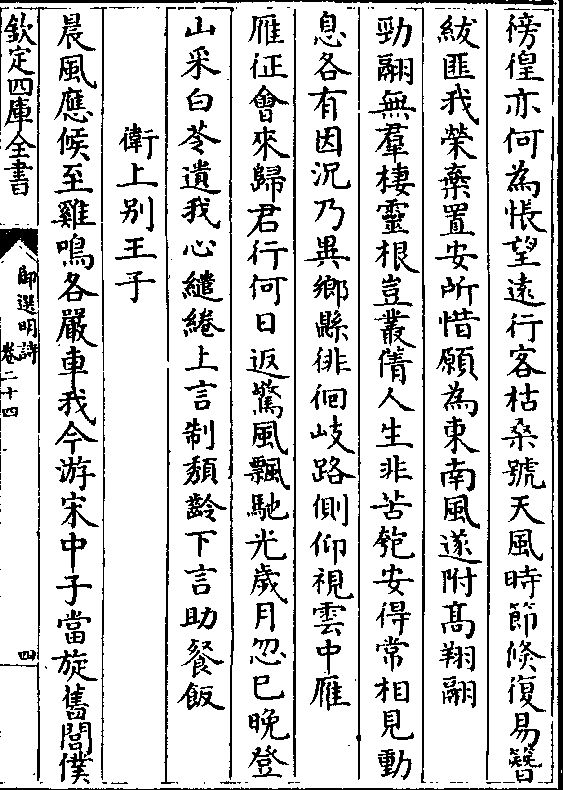 徬徨亦何為悵望遠行客枯桑號天風時節倏復易簪
紱匪我榮棄置安所惜願為東南風遂附高翔翮
勁翮無羣棲靈根豈叢倩人生非苦匏安得常相見動
息各有因況乃異鄉縣徘徊岐路側仰視雲中雁
雁征會來歸君行何日返驚風飄馳光歲月忽已晚登
山采白苓遺我心繾綣上言制頽齡下言助餐飯
衛上別王子
晨風應候至雞鳴各嚴車我今游宋中子當旋舊閭僕
欽定四庫全書
石倉明詩
卷二十四
四